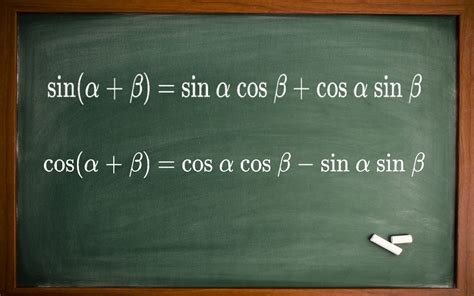 sin(α + β) = sin α cos β + cos α sin β
cos(α + β) = cos α cos β − sin α sin β